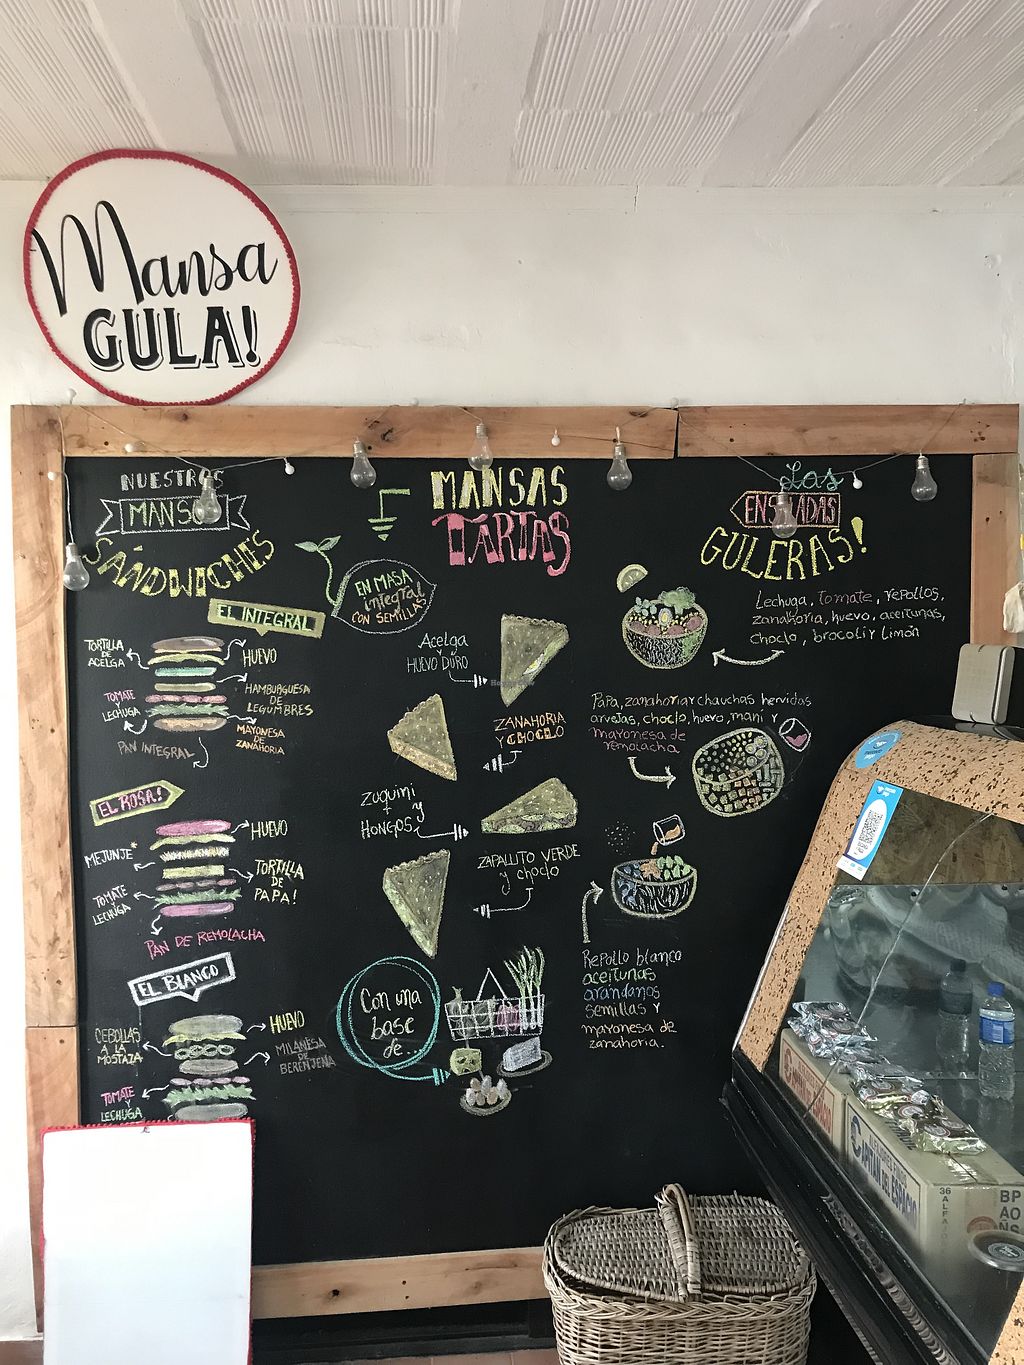 Mansa
GULA!
NUESTROS
SÁNDWICHES
EL INTEGRAL
TORTILLA
DE
ACELGA
HUEVO
HAMBURGUESA
DE
LEGUMBRES
TOMATE
Y
LECHUGA
MAYONESA
DE
ZANAHORIA
PAN INTEGRAL
EL ROSA!
HUEVO
MEJUNJE*
TORTILLA
DE
PAPA!
TOMATE
LECHUGA
PAN DE REMOLACHA
EL BLANCO
HUEVO
CEBOLLAS
A LA
MOSTAZA
MILANESA
DE
BERENJENA
TOMATE
Y
LECHUGA
MANSAS
TARTAS
EN MASA
integral
CON SEMILLAS
Acelga
y
HUEVO DURO
ZANAHORIA
Y CHOCLO
Zuquini
+ y
HONGOS
ZAPALLITO VERDE
y choclo
Con una
base
de...
Las
GULERAS!
Lechuga, tomate, repollos,
zanahoria, huevo, aceitunas,
choclo, brocoli y limón
Papa, zanahoria y chauchas hervidas
arvejas, choclo, huevo, mani y
mayonesa de
remolacha
Repollo blanco
aceitunas
arándanos
semillas y
mayonesa de
zanahoria.
CAPITÁN DEL ESPACIO
36
ALFAJO
BP
AO
ÑS